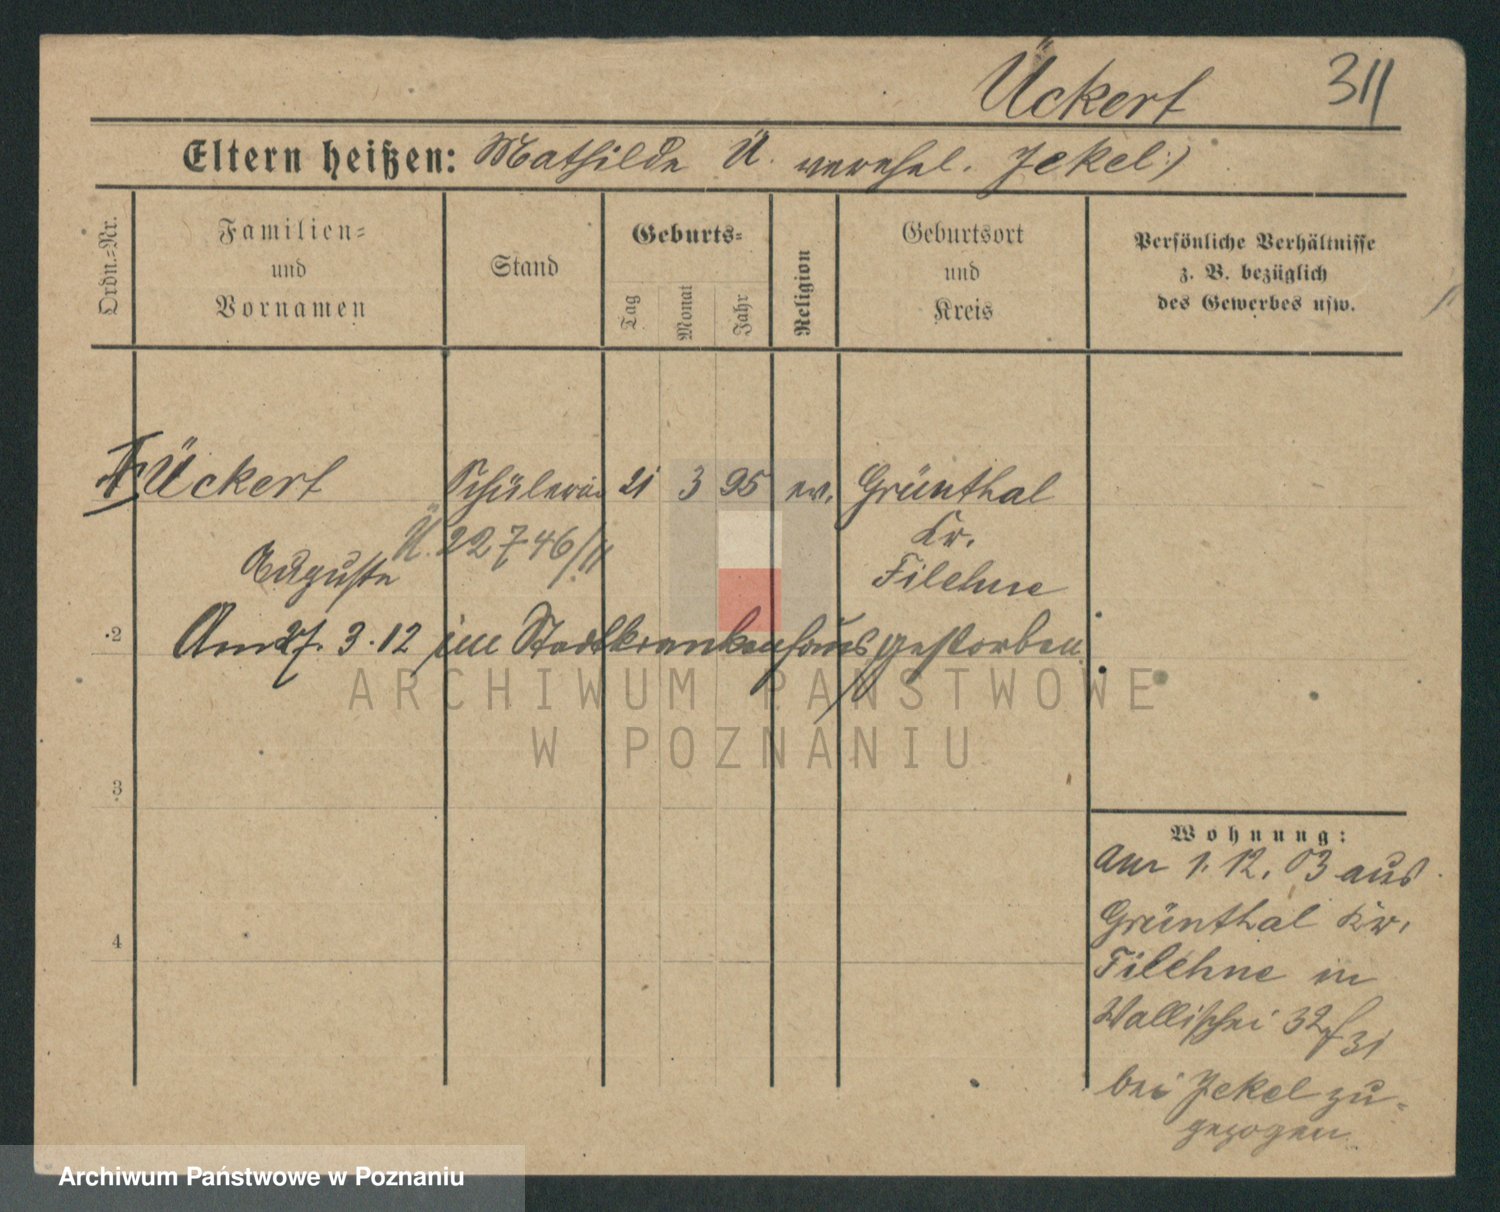 Ückert 311
Eltern heißen: Mathilde Ü. verehel. Jekel
Ordn.-Nr.
Familien-
und
Vornamen
Stand
Geburts-
Tag
Monat
Jahr
Religion
Geburtsort
und
Kreis
Persönliche Verhältnisse
z. B. bezüglich
des Gewerbes usw.
Ückert Schülerin 21 3 95 ev. Grünthal
Ü. 22746/11 Kr.
Auguste Filehne
2 Am 27. 3. 12 im Stadtkrankenhaus gestorben
3
4
Wohnung:
Am 1. 12. 03 aus
Grünthal Kr.
Filehne in
Wallischei 32/31
bei Jekel zu-
gezogen
ARCHIWUM PAŃSTWOWE
W POZNANIU
Archiwum Państwowe w Poznaniu